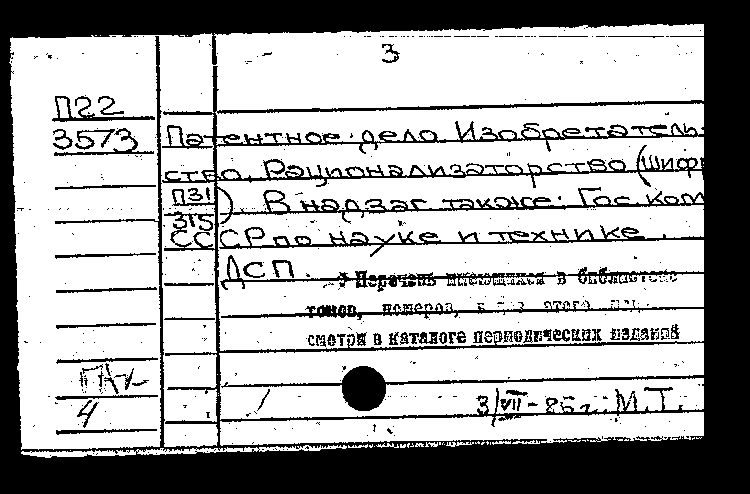 3
П22
3573 Патентное дело. Изобретатель-
ство. Рационализаторство (Шифр
П31
315 ). В надзаг также: Гос. ком
СССР по науке и технике.
ДСП.
Перечень имеющихся в библиотеке
томов, номеров, этого
смотри в каталоге периодических изданий
4
3/VII-86г. М.Т.